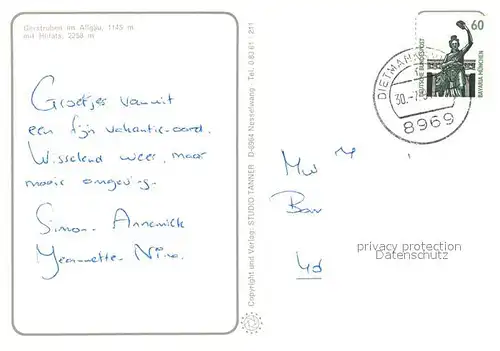 Gerstruben im Allgäu, 1145 m
mit Höfats, 2258 m
Groetjes vanuit
een fijn vakantie-oord.
Wisselend weer, maar
mooie omgeving.
Simon. Annemiek
Jeannette. Nino.
Copyright und Verlag: STUDIO TANNER · D-8964 Nesselwang · Tel. 0 83 61 - 211
60
DEUTSCHE BUNDESPOST
BAVARIA MÜNCHEN
30.-7.
8969
Mw
privacy protection
Datenschutz